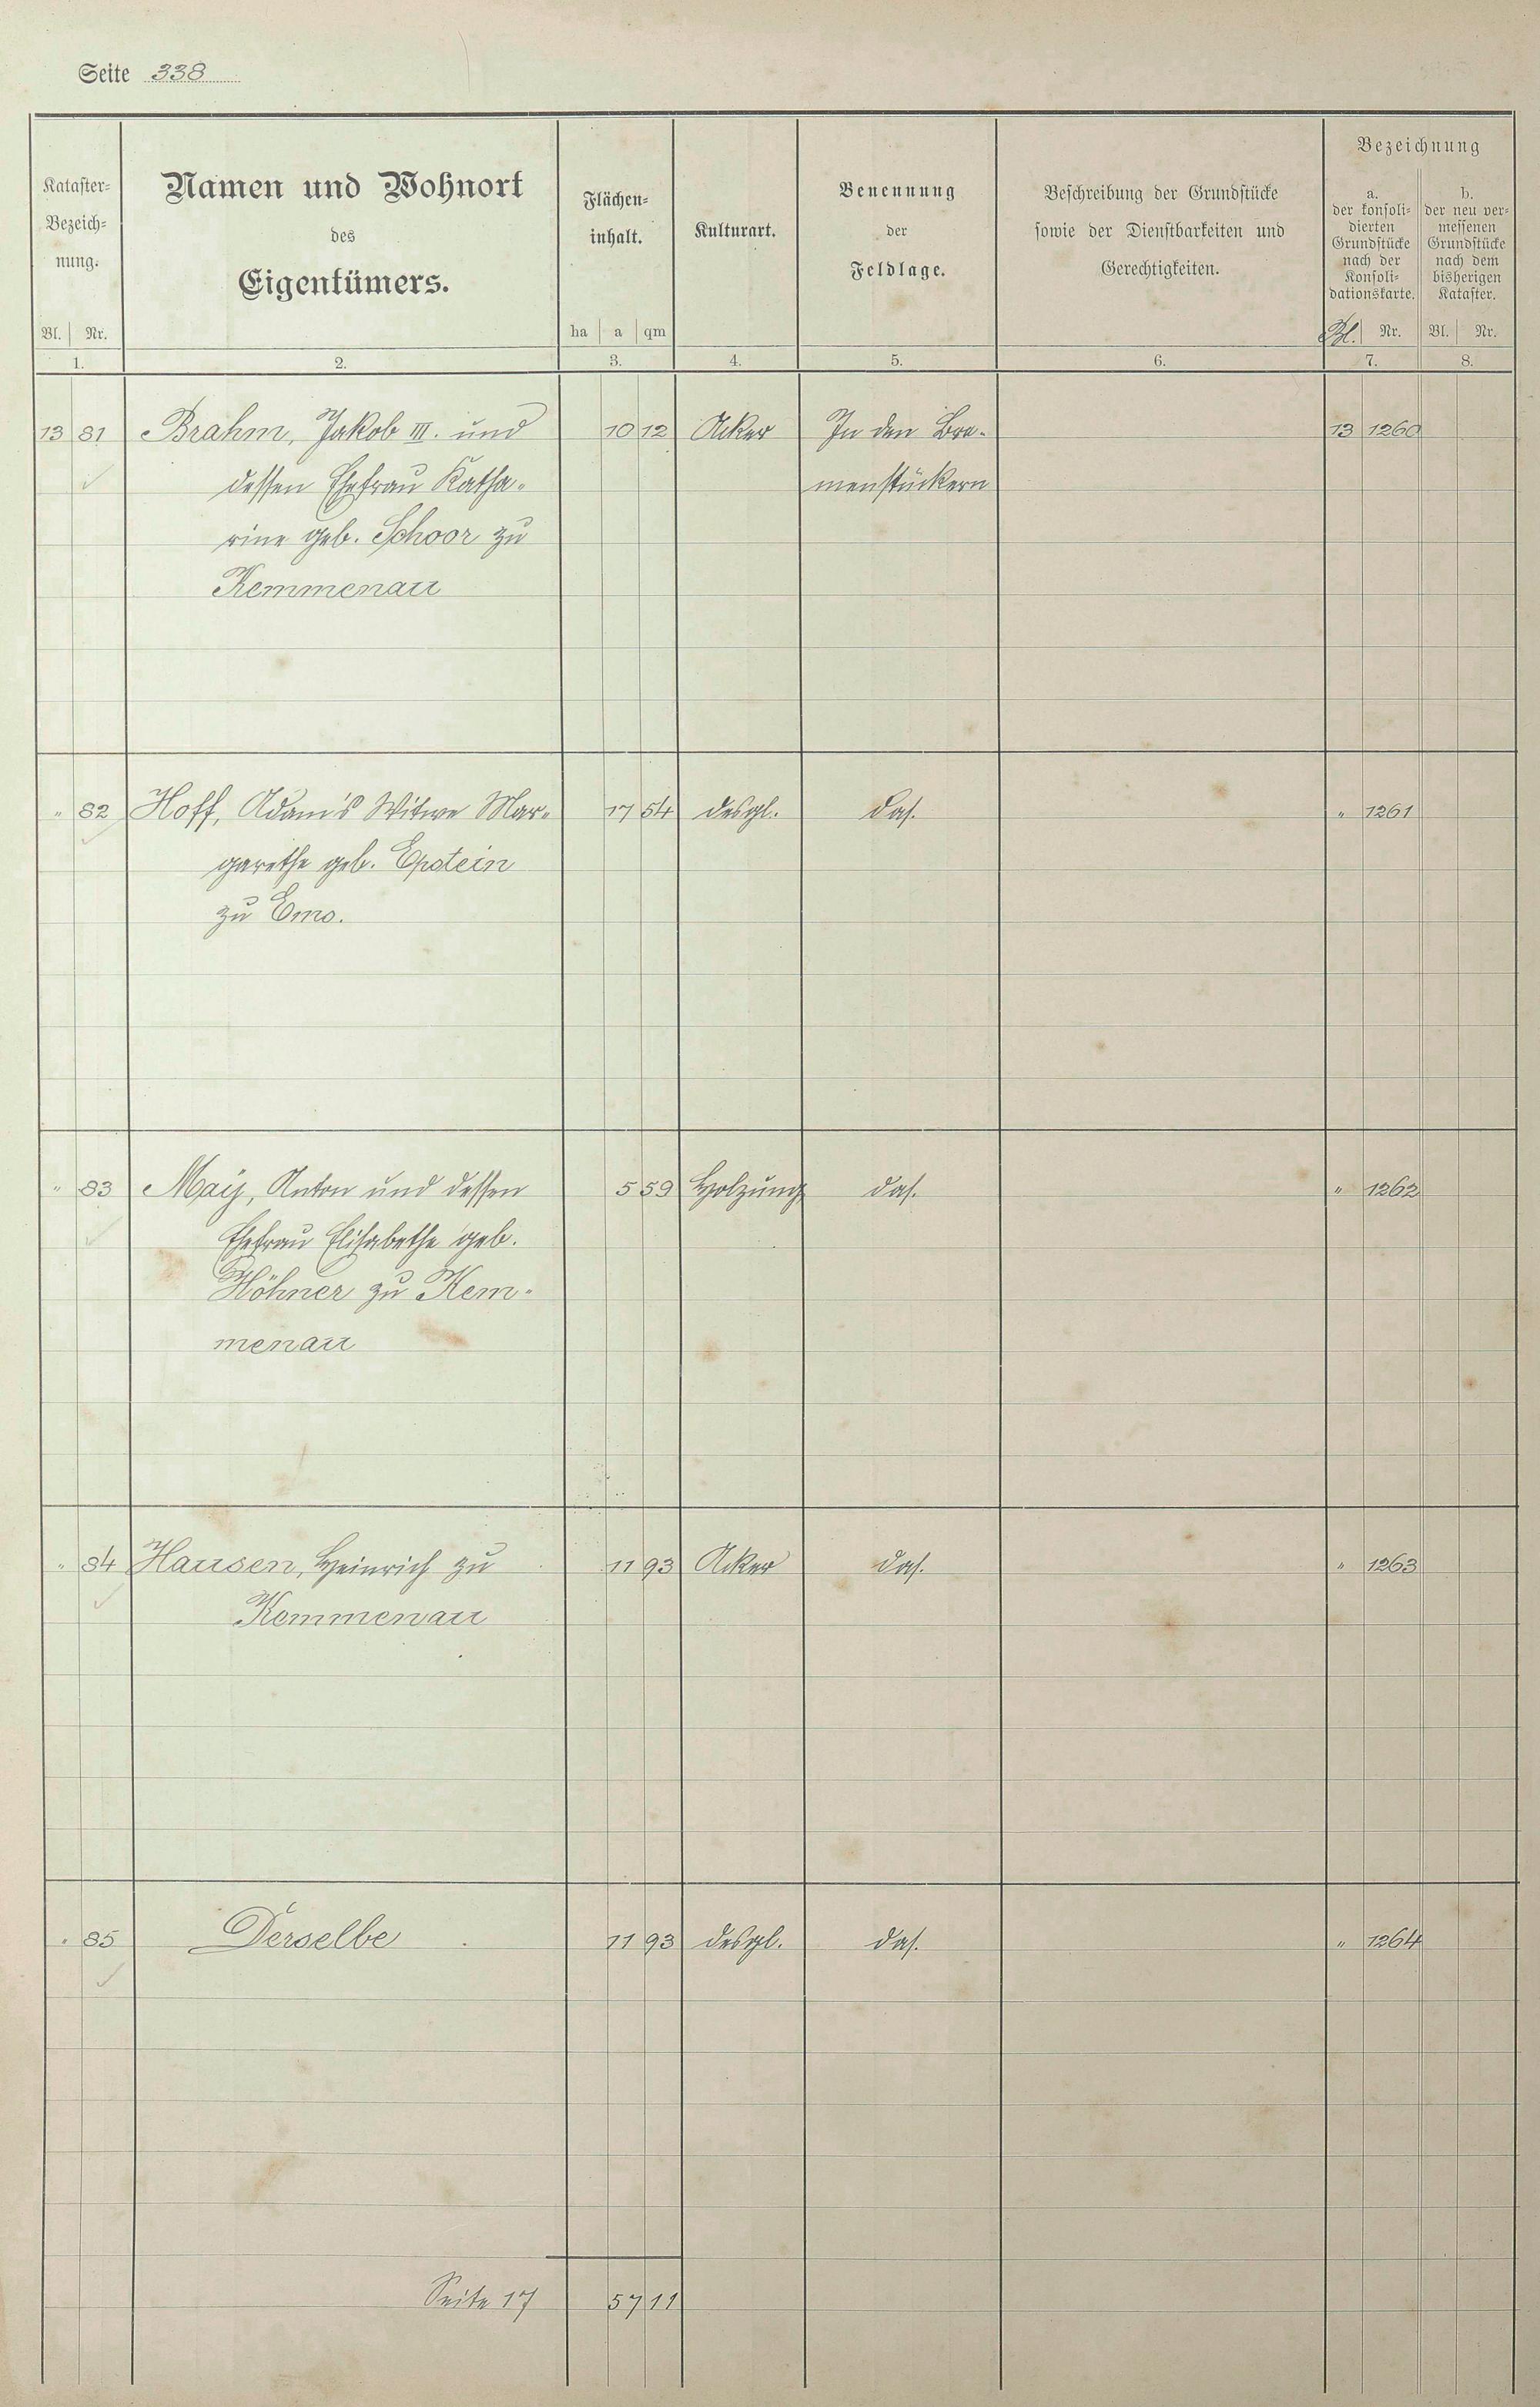 Seite 338
Kataster-
Bezeich-
nung.
Bl. Nr.
1.
Namen und Wohnort
des
Eigentümers.
2.
Flächen-
inhalt.
ha a qm
3.
Kulturart.
4.
Benennung
der
Feldlage.
5.
Beschreibung der Grundstücke
sowie der Dienstbarkeiten und
Gerechtigkeiten.
6.
Bezeichnung
a.
der konsoli-
dierten
Grundstücke
nach der
Konsoli-
dationskarte.
Bl. Nr.
7.
b.
der neu ver-
messenen
Grundstücke
nach dem
bisherigen
Kataster.
Bl. Nr.
8.
13 81 Brahm, Jakob III. und 10 12 Acker In den Bra- 13 1260
dessen Ehefrau Katha- menstückern
rine geb. Schoor zu
Kemmenau
" 82 Hoff, Adam's Witwe Mar- 17 54 desgl. das. " 1261
garethe geb. Epstein
zu Ems.
" 83 Maÿ, Anton und dessen 5 59 Holzung das. " 1262
Ehefrau Elisabethe geb.
Höhner zu Kem-
menau
" 84 Hausen, Heinrich zu 11 93 Acker das. " 1263
Kemmenau
" 85 Derselbe 11 93 desgl. das. " 1264
Seite 17 57 11